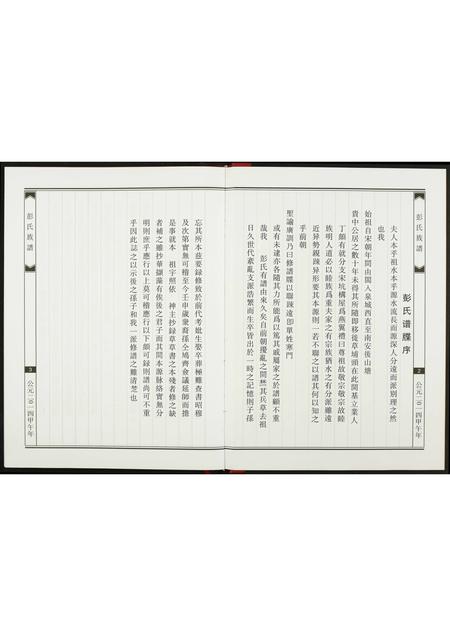 彭氏族譜
2
公元二〇一四甲午年
彭氏譜牒序
夫人本乎祖水本乎源水流長而源深人分遠而派別理之然
也我
始祖自宋朝年間由閩入泉城西直至南安後山塘
貴中公居之數十年未得其所隨即移徙草埔頭在此開基立業人
丁頗有就分支宋坑構屋爲燕翼禮曰尊祖故敬宗敬宗故睦
族明人道必以睦族爲重夫家之有宗族猶水之有分派雖遠
近异勢親疎异形要其本源則一若不聯之以譜其何以知之
乎前朝
聖諭廣訓乃曰修譜牒以聯疎遠即單姓寒門
或有未逮亦各隨其力所能爲以篤其戚屬家之於譜顧不重
哉我 彭氏有譜由來久矣自前朝擾亂之間焚其兵草去祖
日久世代紊亂支派浩繁而生卒皆出於一時之記憶則子孫
忘其所本茲要録修致於前代考妣生娶卒葬極難查書昭穆
及次第實無可稽至今壬申歲衆裔孫仝鳩齊會議延師而擔
是事就本 祖宇照依 神主抄録草書之本殘者修之缺
者補之雖抄華擷藻有俟後之君子而其間本源脉絡實無分
明則庶乎應行以上莫可稽應行以下頗可録則譜尚可不重
乎因此誌之以示後之孫子和我一派修譜之難清楚也
彭氏族譜
3
公元二〇一四甲午年